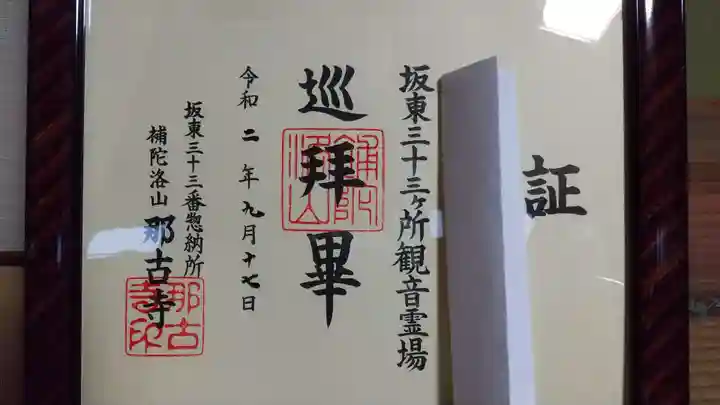 証
坂東三十三ヶ所観音霊場
巡拝畢
令和二年九月十七日
坂東三十三番惣納所
補陀洛山那古寺
補陀洛山
那古寺印